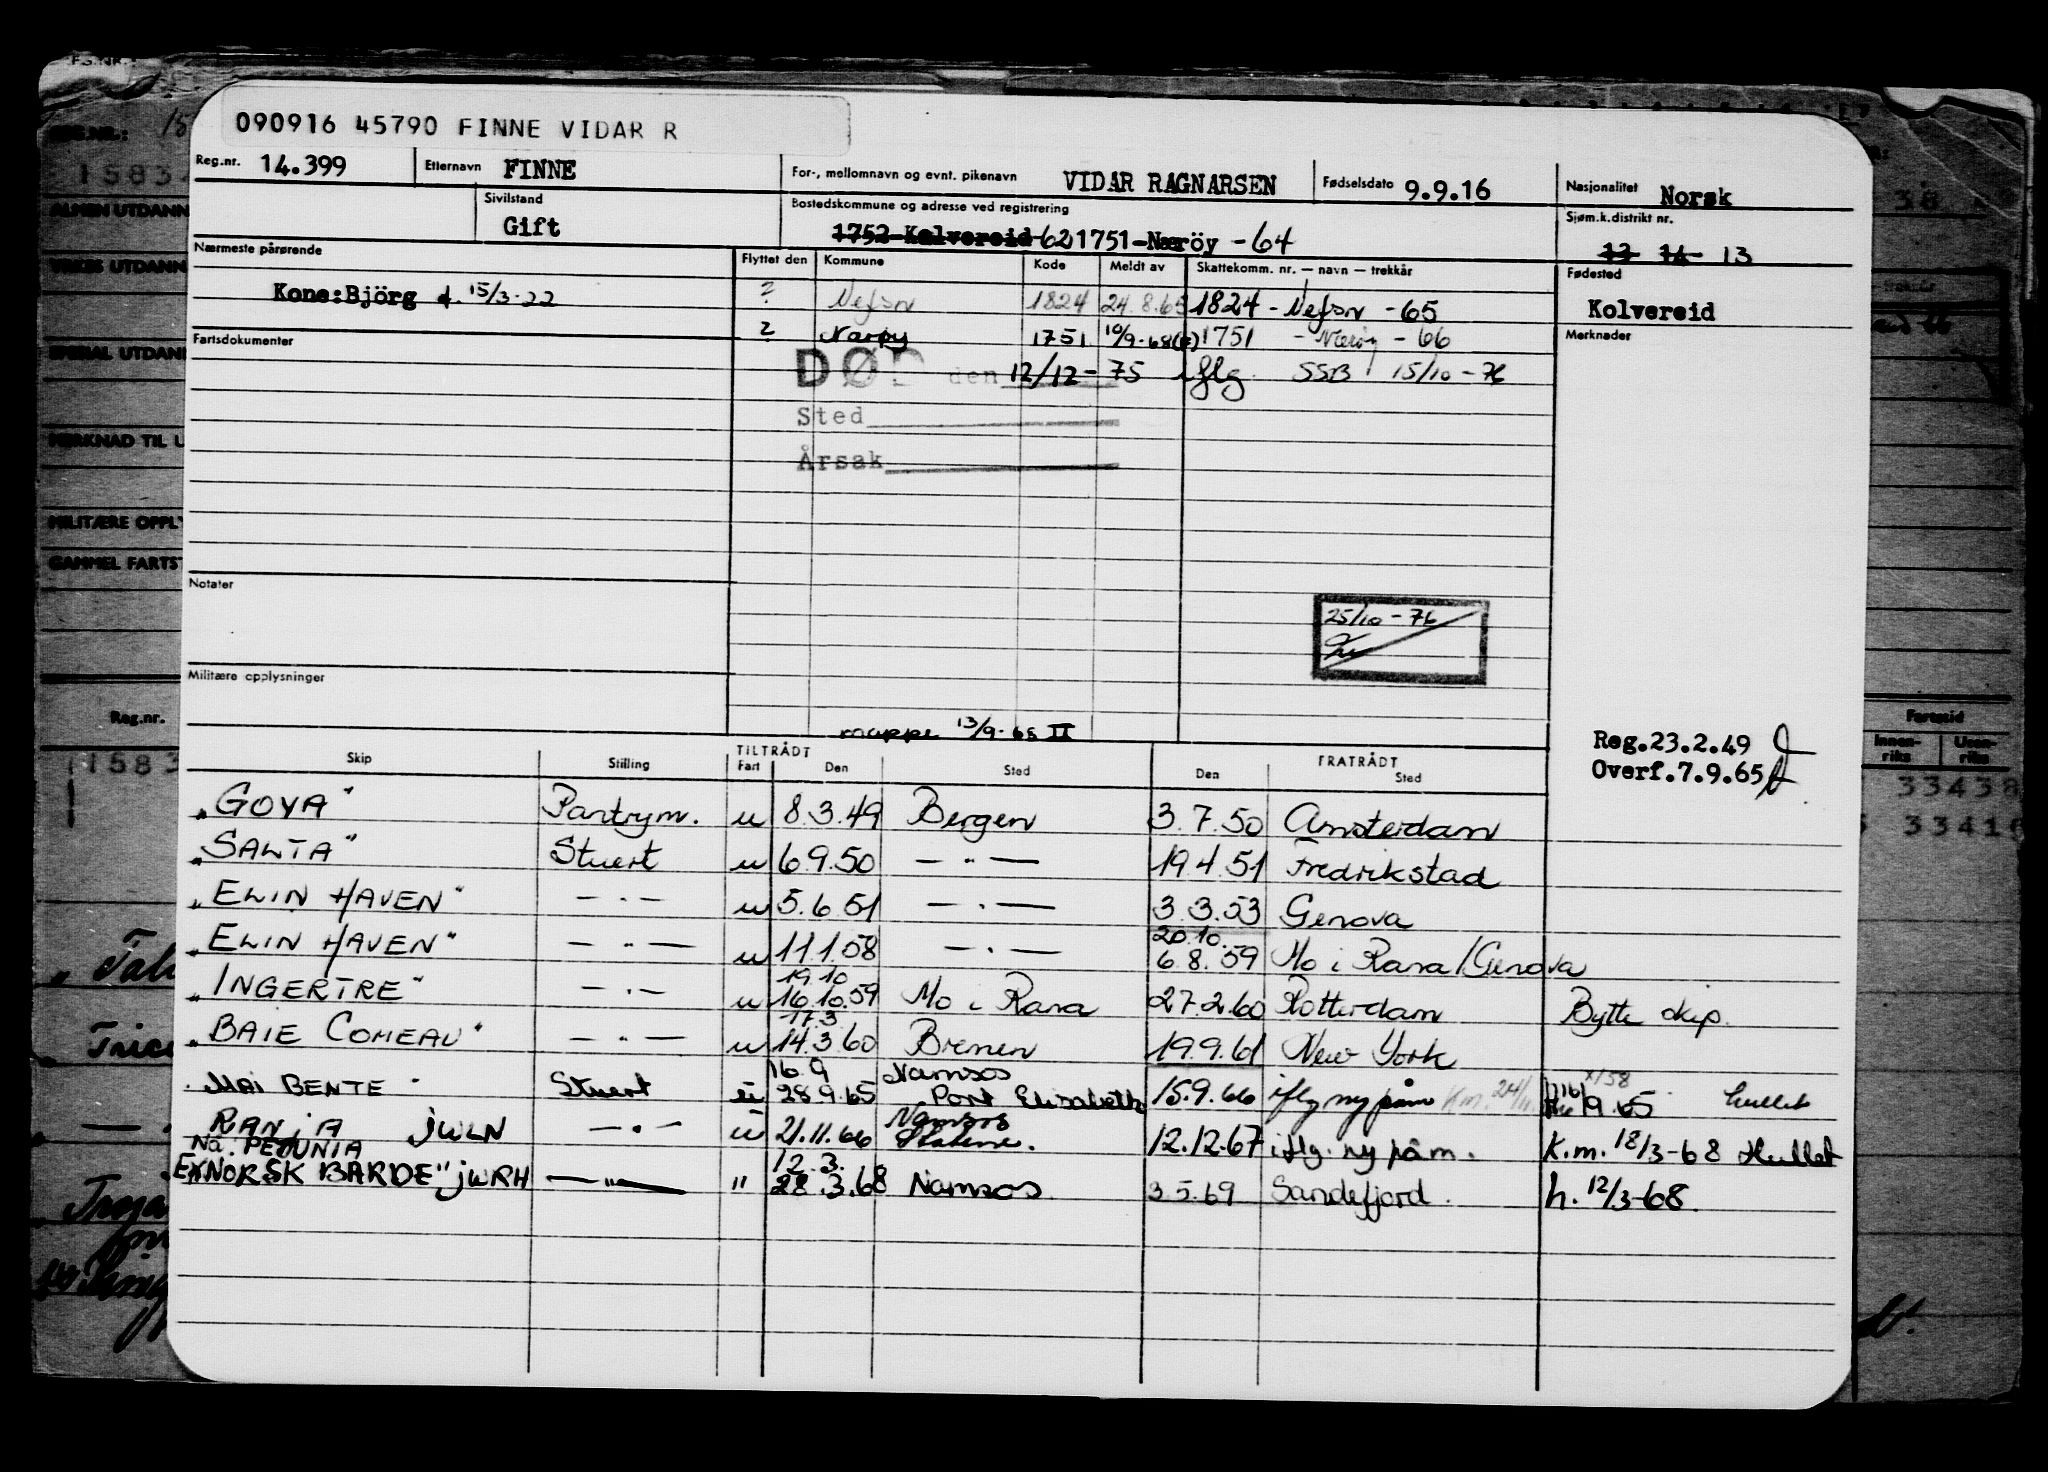 090916 45790 FINNE VIDAR R
Reg.nr. 14.399 Etternavn FINNE For-, mellomnavn og evnt. pikenavn VIDAR RAGNARSEN Fødselsdato 9.9.16 Nasjonalitet Norsk
Sivilstand Gift Bostedskommune og adresse ved registrering Sjøm.k.distrikt nr.
1752 Kolvereid 62 1751-Nærøy - 64 13 14 13
Nærmeste pårørende Flyttet den Kommune Kode Meldt av Skattekomm. nr. — navn — trekkår Fødested
Kone: Björg f. 15/3-22 ? Vefsn 1824 24.8.65 1824 - Vefsn - 65 Kolvereid
Fartsdokumenter ? Nærøy 1751 10/9-68 1751 - Nærøy - 66 Merknader
DØD den 12/12-75 iflg. SSB 15/10-76
Sted
Årsak
Notater
25/10-76
Militære opplysninger
mappe 13/9-65 II
Reg.23.2.49
Overf.7.9.65
Skip Stilling TILTRÅDT Fart Den Sted FRATRÅDT Den Sted
"GOYA" Pantrym. u 8.3.49 Bergen 3.7.50 Amsterdam
"SALTA" Stuert u 6.9.50 — " — 19.4.51 Fredrikstad
"ELIN HAVEN" — " — u 5.6.51 — " — 3.3.53 Genova
20.10.
"ELIN HAVEN" — " — u 11.1.58 — " — 6.8.59 Mo i Rana/Genova
19.10
"INGERTRE" — " — u 16.10.59 Mo i Rana 27.2.60 Rotterdam Bytte skip.
17.3
"BAIE COMEAU" — " — u 14.3.60 Bremen 19.9.61 New York
16.9 Namsos
"MAI BENTE" Stuert u 28.9.65 Port Elisabeth 15.9.66 iflg ny påm 9.65 hullet
Namsos
RANJA JWLN — " — u 21.11.66 12.12.67 iflg. ny påm. K.m. 18/3-68 Hullet
Nå. PETUNIA 12.3.
Ex NORSK BARDE" JWRH — " — " 28.3.68 Namsos 3.5.69 Sandefjord. h. 12/3-68.
REG.NR.:
ALMEN UTDANN
YRKES UTDANN
SPESIAL UTDANN
MERKNAD TIL U
MILITÆRE OPPLY
GAMMEL FARTST
Reg.nr.
1583
Fartstid
Innen-riks Uten-riks
33438
33416